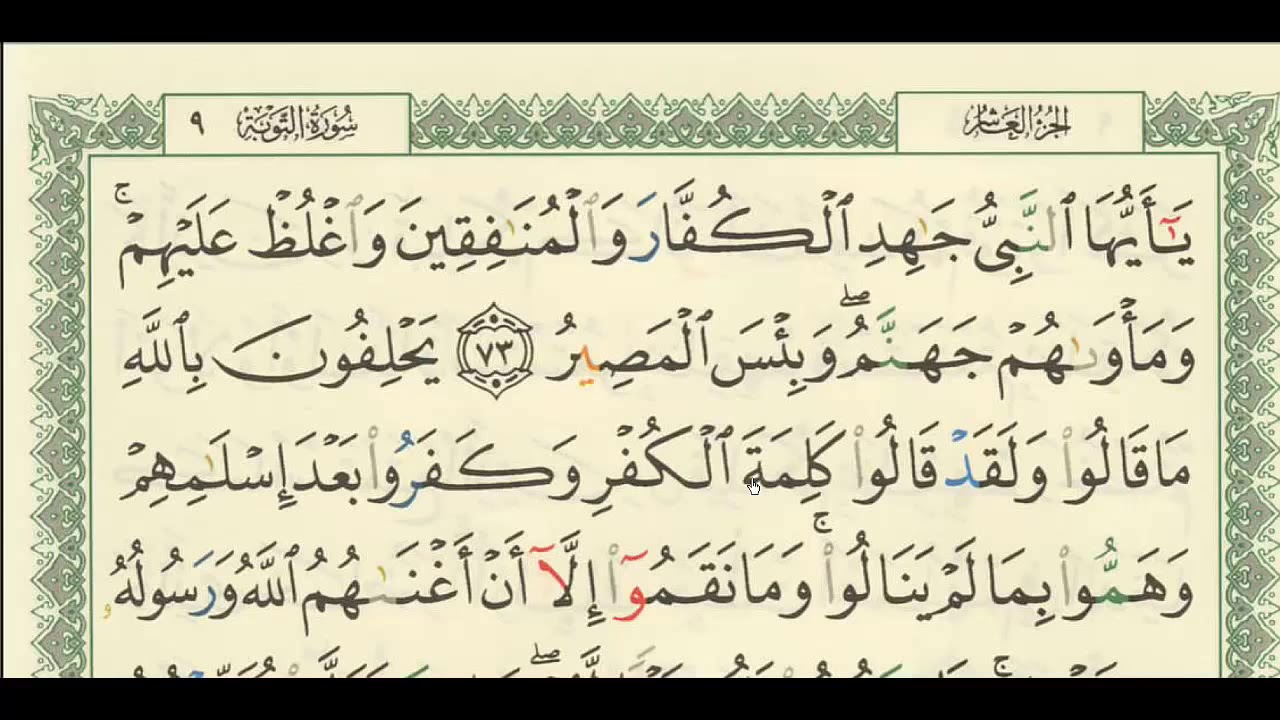 الجزء العاشر
سورة التوبة ٩
يَٰٓأَيُّهَا ٱلنَّبِىُّ جَٰهِدِ ٱلْكُفَّارَ وَٱلْمُنَٰفِقِينَ وَٱغْلُظْ عَلَيْهِمْ ۚ
وَمَأْوَىٰهُمْ جَهَنَّمُ ۖ وَبِئْسَ ٱلْمَصِيرُ ٧٣ يَحْلِفُونَ بِٱللَّهِ
مَا قَالُوا۟ وَلَقَدْ قَالُوا۟ كَلِمَةَ ٱلْكُفْرِ وَكَفَرُوا۟ بَعْدَ إِسْلَٰمِهِمْ
وَهَمُّوا۟ بِمَا لَمْ يَنَالُوا۟ ۚ وَمَا نَقَمُوٓا۟ إِلَّآ أَنْ أَغْنَىٰهُمُ ٱللَّهُ وَرَسُولُهُۥ